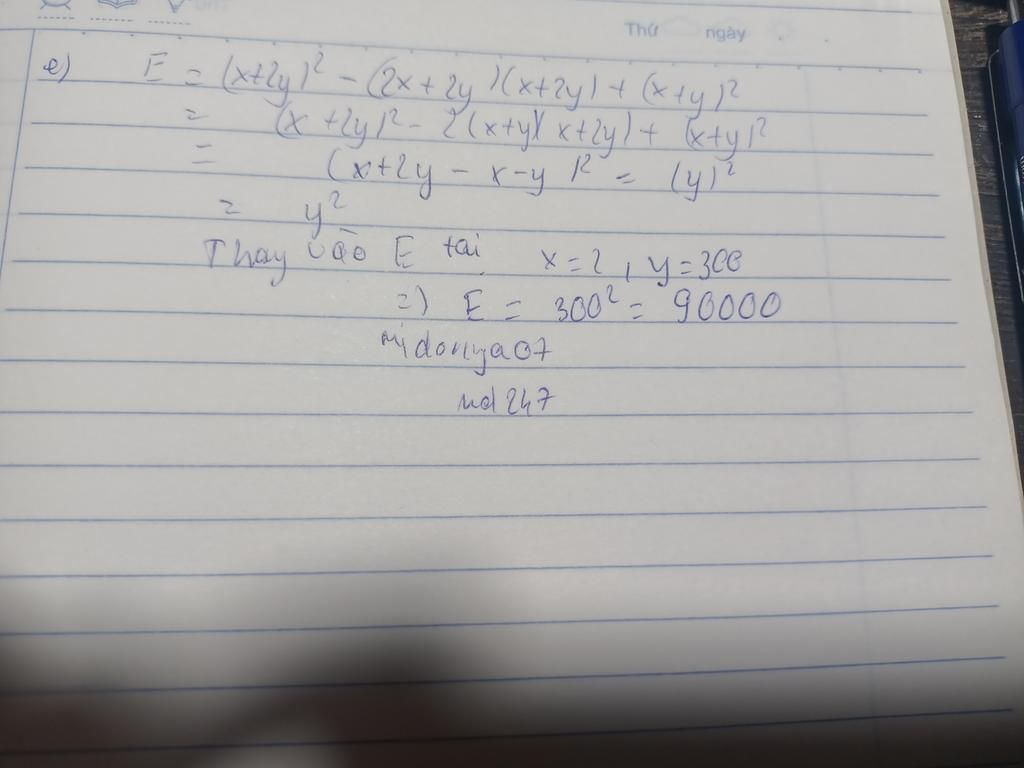 Thứ ngày
e) E = (x+2y)² - (2x+2y)(x+2y) + (x+y)²
= (x+2y)² - 2(x+y)(x+2y) + (x+y)²
= (x+2y - x-y)² = (y)²
= y²
Thay vào E tại x=2, y=300
=) E = 300² = 90000
midonya07
md247